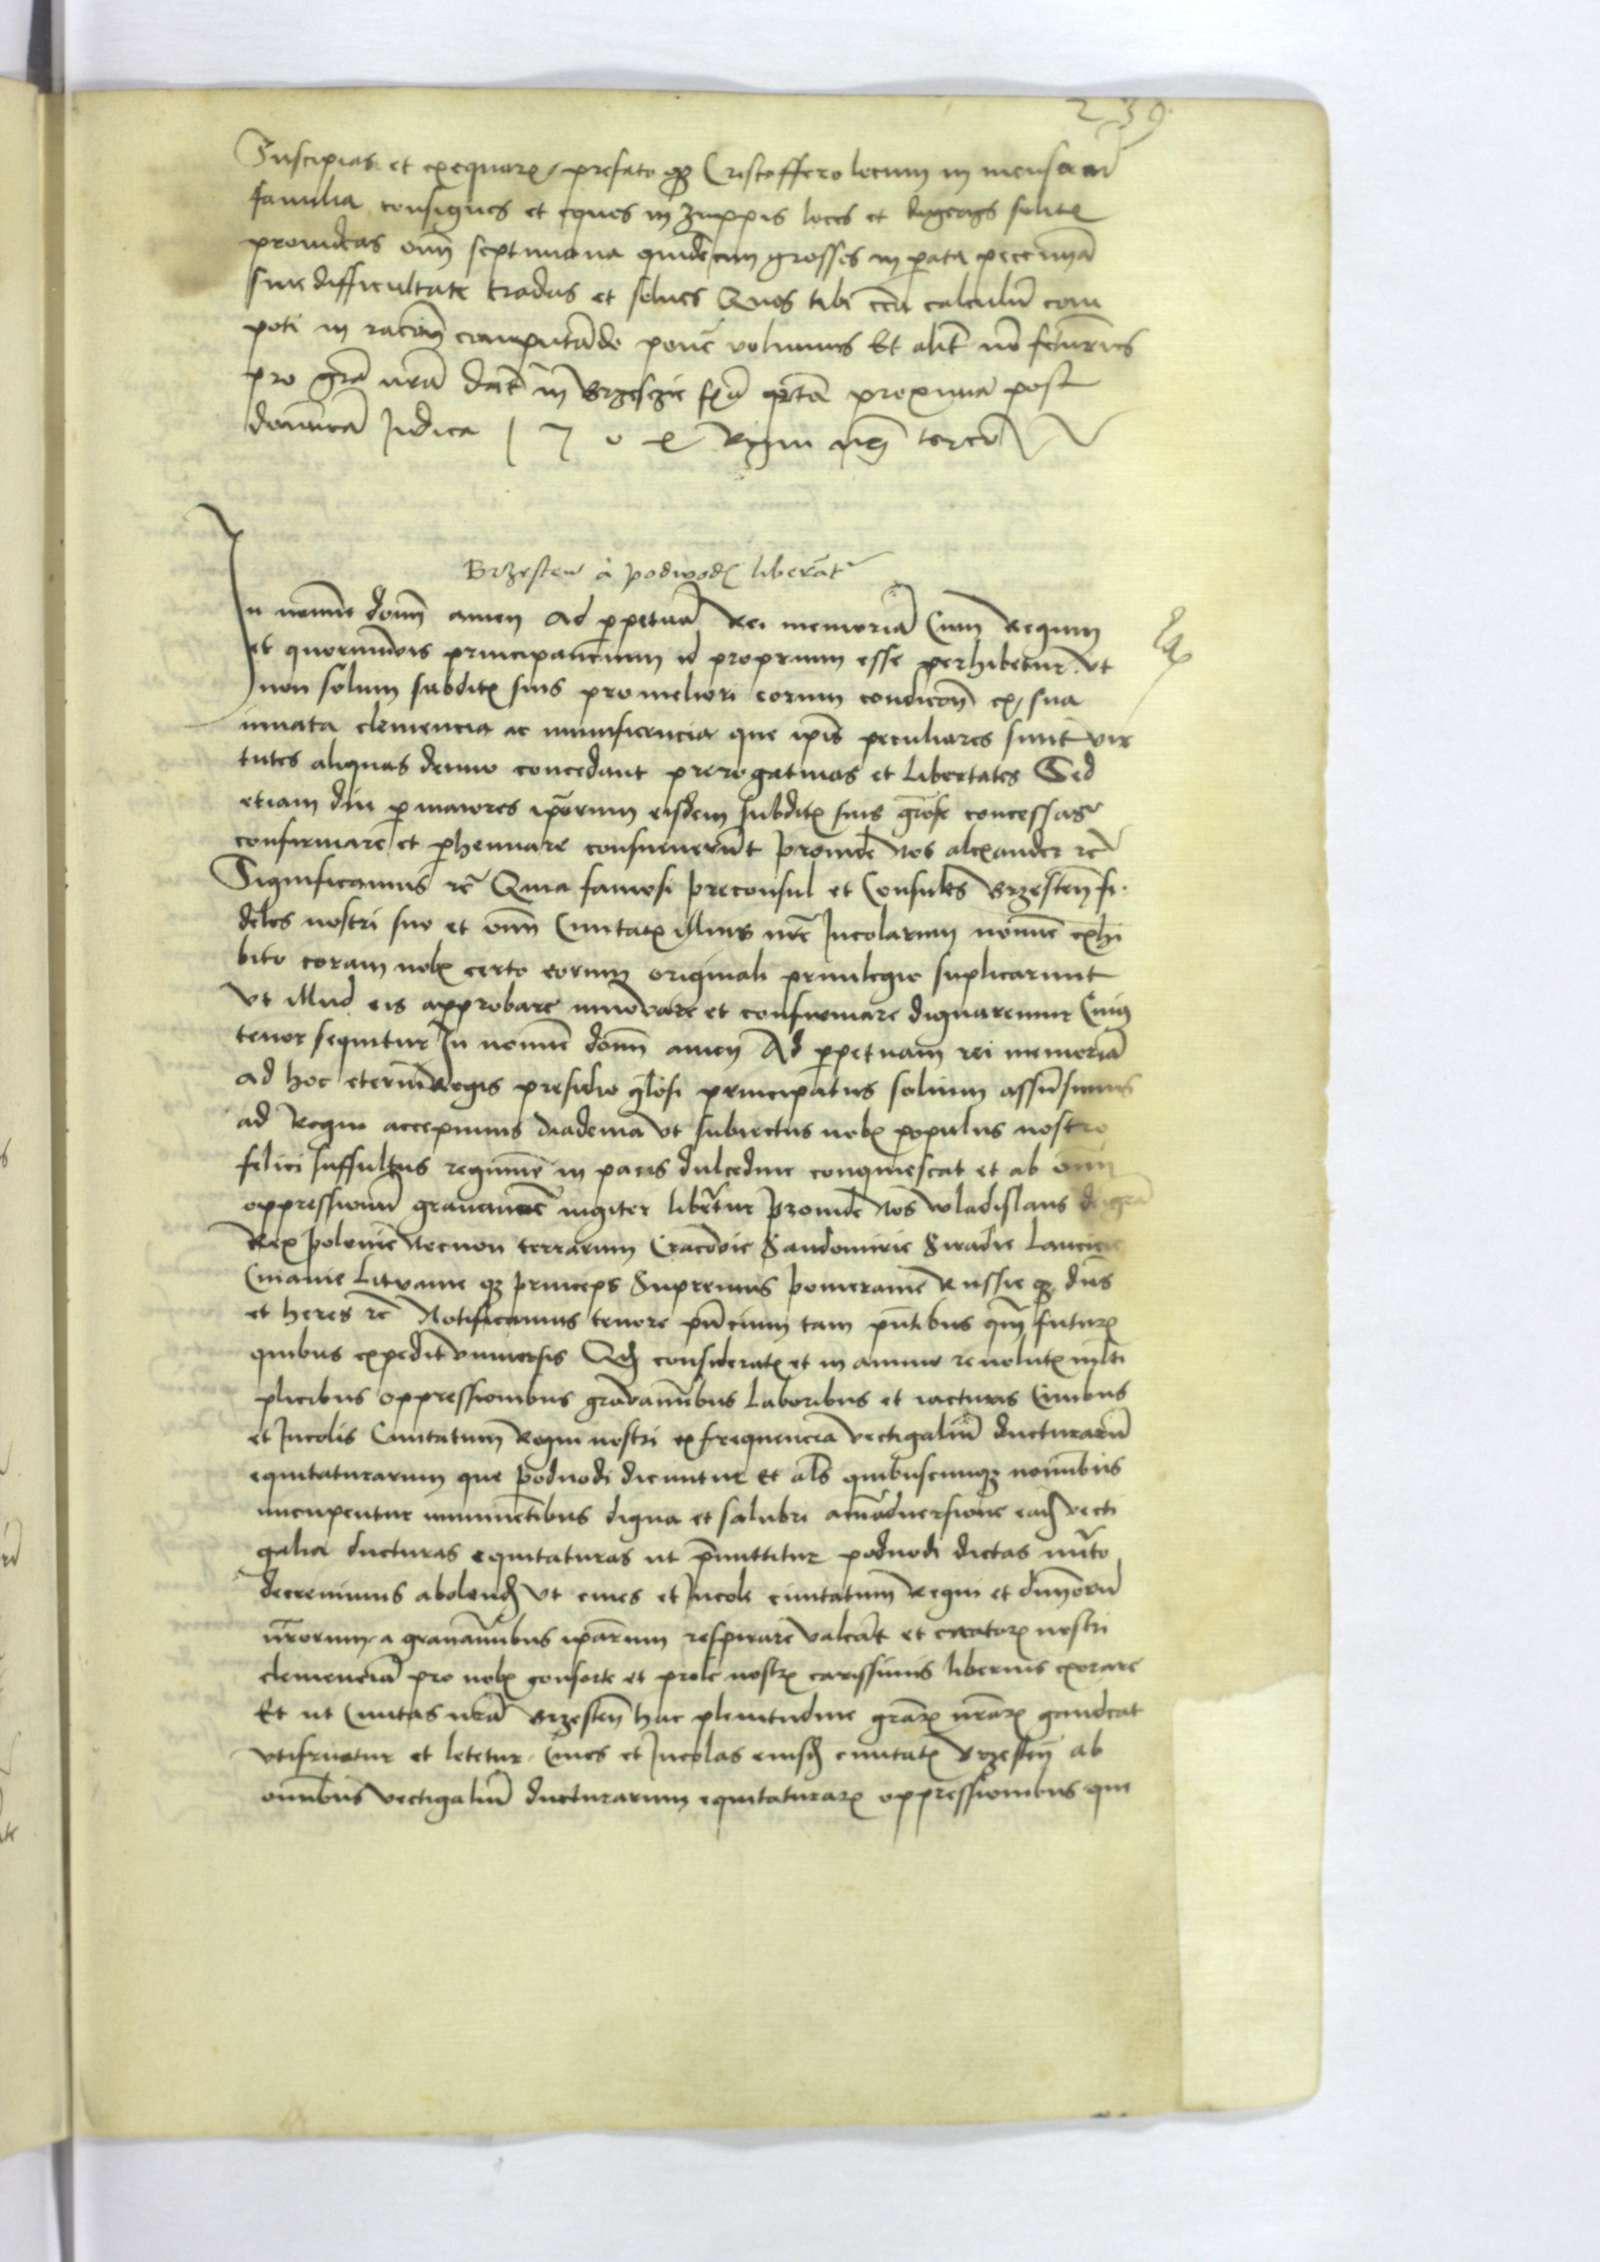 239
Suscipias et exequar / prefato Cristoffero locum in mensa
familia consignes et eques in Zuppis loces et solit
provideas omi septimana quindecim grosses in parata pecunia
sine difficultate tradas et solves Quos tibi circa calculum com
poti in racōm computādo ponē volumus Et alit nō fcturus
pro grā nrā Dat in Brzesczie fria qrta proxima post
dominicā Judica Regni nri tercio
Brzesten à podwod liberat
In nomine domī amen Ad ppetuā Rei memoriā Cum Regum
et quorumvis principancium id proprium esse perhibetur ut
non solum subditis suis pro meliori eorum condicōn ex sua
innata clemencia ac munificencia que ipīs peculiares sunt vir
tutes aliquas denuo concedant prerogativas et libertates Sed
etiam diu p maiores ipōrum eisdem subditis suis grōse concessas
confirmare et phennare consueverūt proinde Nos alexander rc
Significamus rc Quia famosi preconsul et Consules Brzesten fi
deles nostri suo et omī Civitatis illius nrē Incolarum nomīe exhi
bito coram nobis certo eorum originali privilegio suplicarunt
Ut illud eis approbare innovare et confirmare dignaremur Cuius
tenor sequitur In nomīe domī amen Ad ppetuam rei memoriā
ad hoc eterni Regis presidio glōsi principatus solium assūsimus
ad Regni accepimus diadema ut subiectus nobis populus nostro
felici suffultus regimīe in pacis dulcedine conquiescat et ab omī
oppressionū gravamīe iugiter libētur Proinde Nos wladislaus dei grā
Rex polonie Necnon terrarum Cracovie Sandomirie Siradie Lancicie
Cuiavie Litvanie qz princeps Supremus pomeranie Russie qz dns
et heres rc Notificamus tenore pñcium tam pñtibus qm futuris
quibus expedit universis Qd consideratis et in animo revolutis mlti
plicibus oppressionibus gravamībus laboribus et iacturis Civibus
et Incolis Civitatum Regni nostri ex frequencia vectigaliū ducturarū
equitaturarum que podvodi dicuntur et als quibuscunqz nomībus
nucupentur imminētibus digna et salubri aiadversione ead vecti
galia ducturas equitaturas ut pmittitur podvodi dictas mīto
decrevimus abolend Ut cives et Incole civitatum Regni et dmiorū
nrorum a gravamībus iparum respirare valeāt et creatoris nostri
clemenciā pro nobis consorte et prole nostris carissimis liberius exorare
Et ut Civitas nrā Brzesten hac plenitudine grāris nrāris gaudeat
utifruatur et letetur Cives et Incolas eiusd civitatis Brzesten ab
omībus vectigaliū ducturarum equitaturaris oppressionibus que